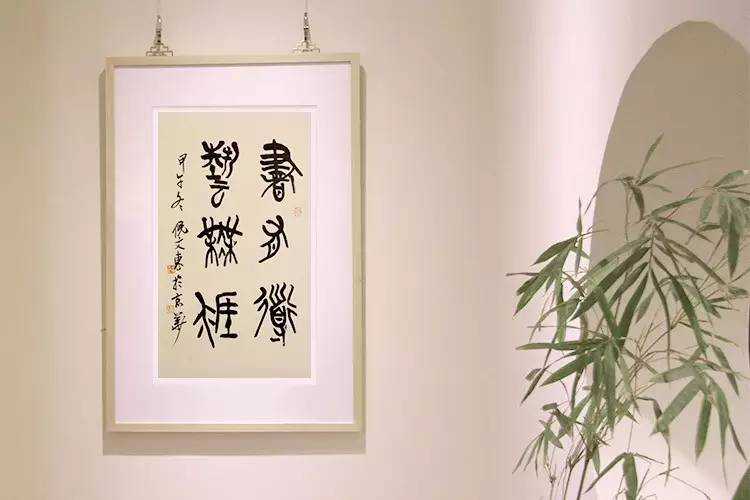 書有道
藝無涯
甲午冬倪文東於京華